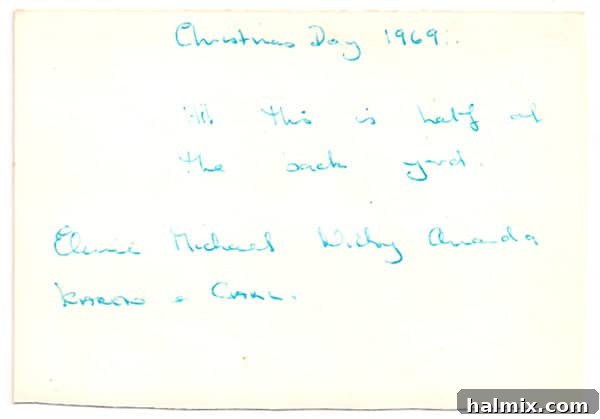 Christmas Day 1969.
this is half of
the back yard.
Michael Amanda
KAREN & CARL.
halmix.com